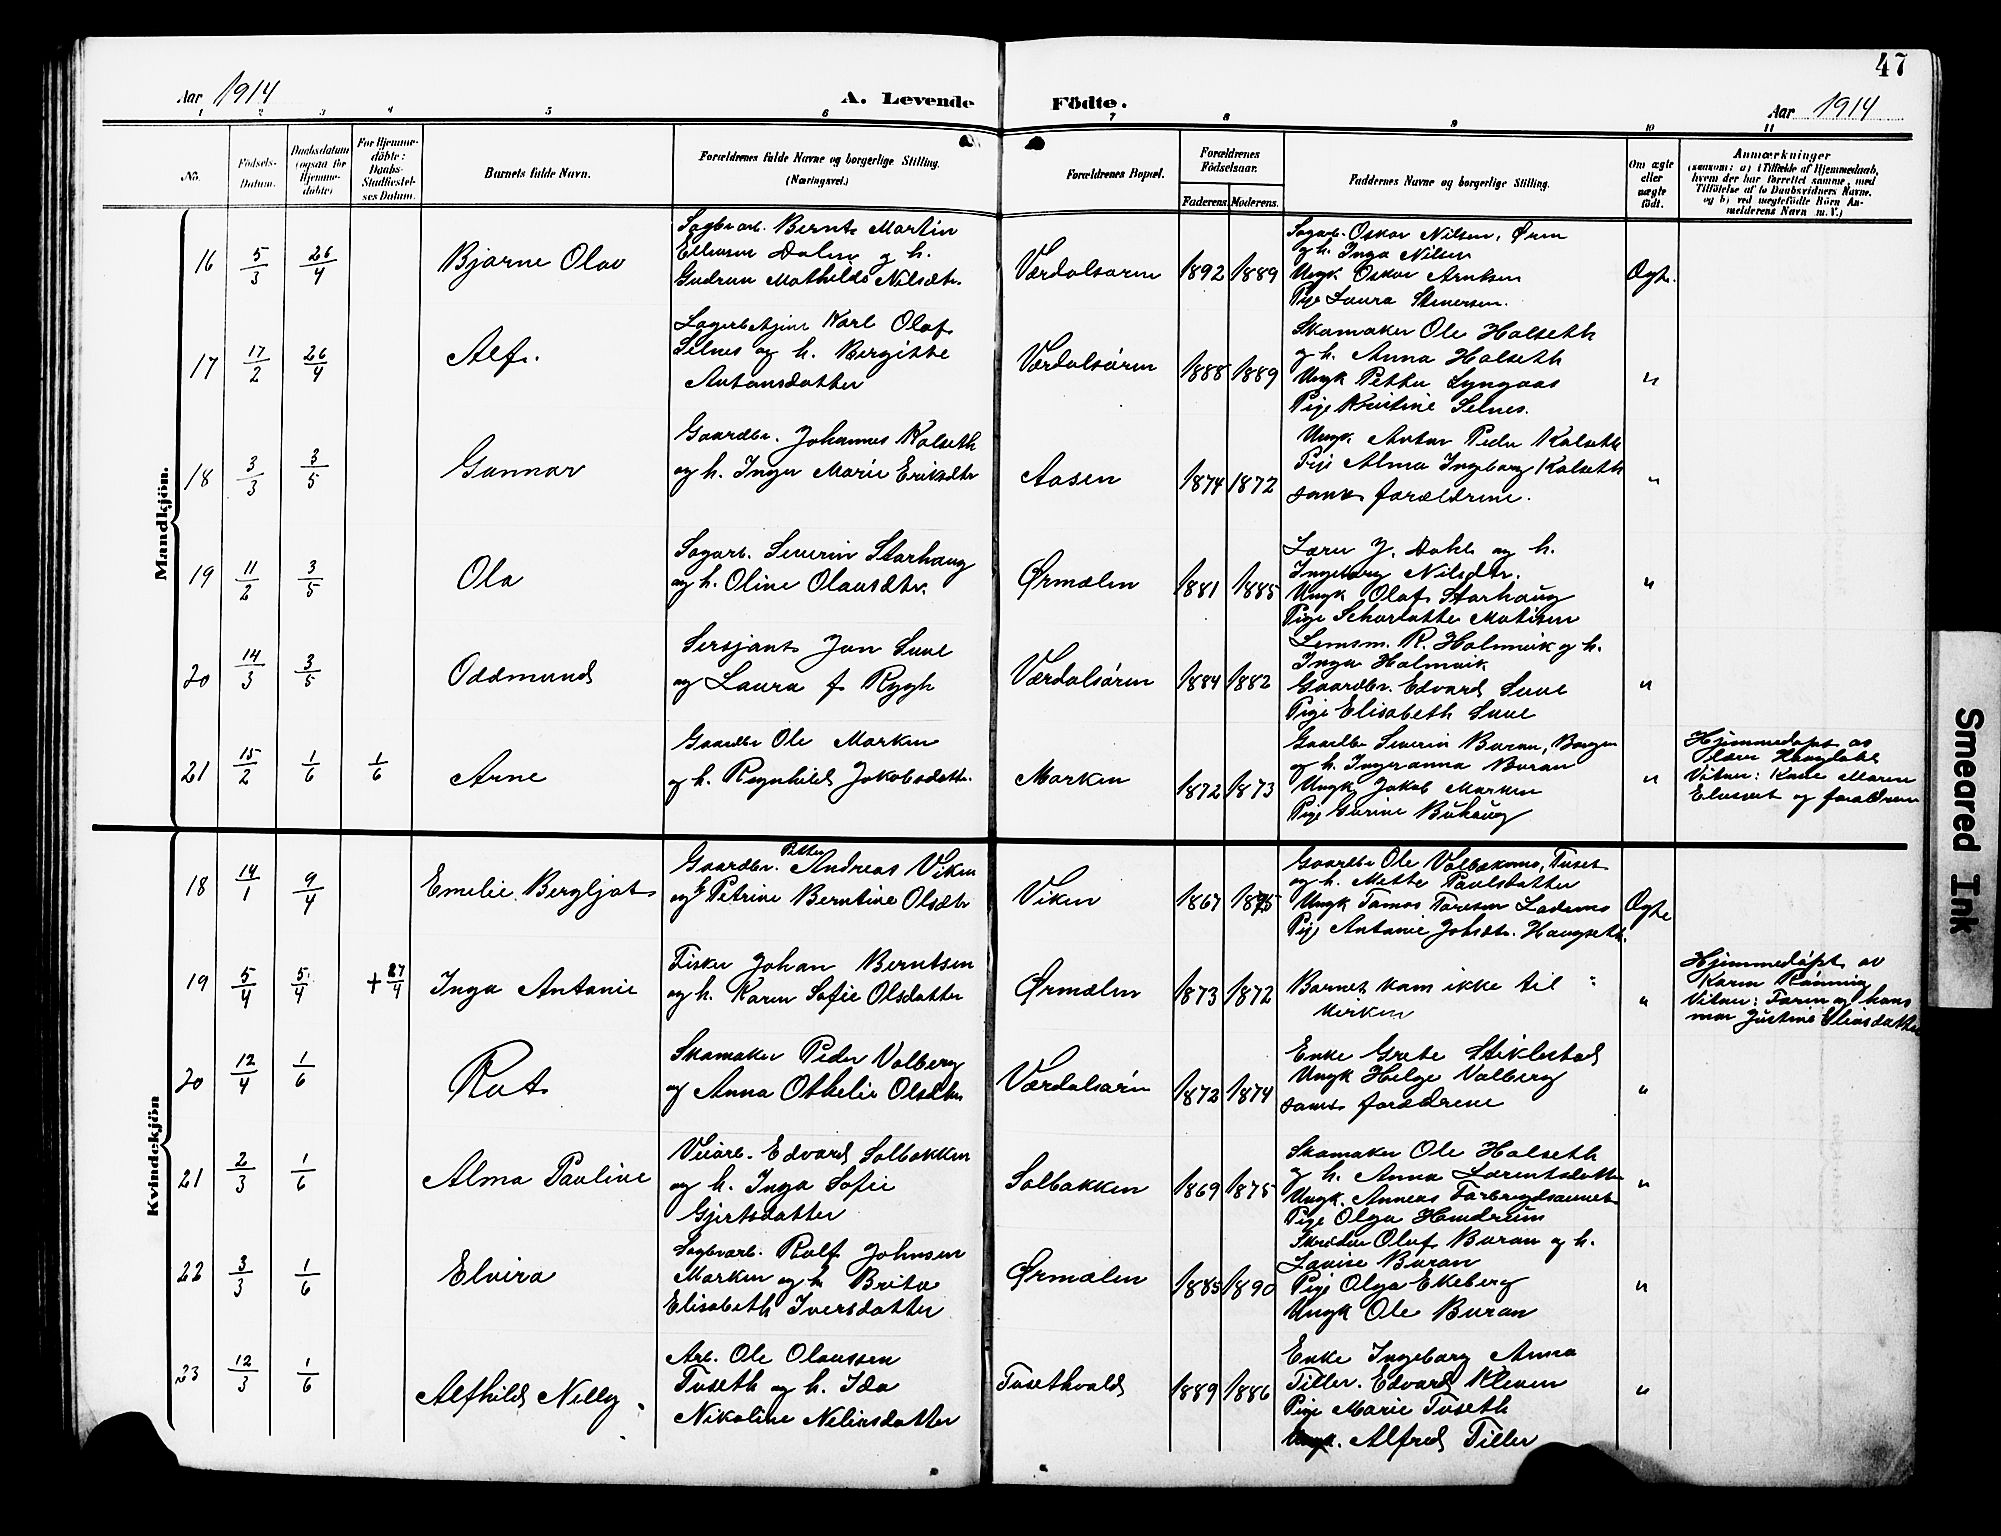 47
Aar 1914
A. Levende Födte.
Aar 1914
1 2 3 4 5 6 7 8 9 10 11
No.
Födsels-Datum.
Daabsdatum (ogsaa for Hjemme-döbte)
For Hjemme-döbte: Daabs-Stadfæstel-ses Datum.
Barnets fulde Navn.
Forældrenes fulde Navne og borgerlige Stilling. (Næringsvei.)
Forældrenes Bopæl.
Forældrenes Födselsaar.
Faderens. Moderens.
Faddernes Navne og borgerlige Stilling.
Om ægte eller uægte födt.
Anmærkninger
(saasom: a) i Tilfælde af Hjemmedaab, hvem der har forrettet samme, med Tilföielse af to Daabsvidners Navne, og b) ved uægtefödte Börn An-melderens Navn m. V.)
Mandkjön.
16 5/3 26/4 Bjarne Olav
Sagbrarb. Bernt Martin
Ellevsen Dalin og h.
Gudrun Mathilde Nilsdtr.
Værdalsøren 1892 1889
Sagarb. Oskar Nilsen, Øren
og h. Inga Nilsen
Ungk. Oskar Arntsen
Pige Laura Stenersen.
Ægte.
17 17/2 26/4 Alf.
Lagerbetjent Karl Olaf
Selnes og h. Bergitte
Antonsdatter
Værdalsøren 1888 1889
Skomaker Ole Halseth
og h. Anna Halseth
Ungk Petter Lyngaas
Pige Kristine Selnes.
"
18 3/3 3/5 Gunnar
Gaardbr. Johannes Kalseth
og h. Inger Marie Eriksdtr
Aasen 1874 1872
Ungk Anton Peder Kalseth
Pige Alma Ingeborg Kalseth
samt forældrene.
"
19 11/2 3/5 Ola
Sagarb. Severin Storhaug
og h. Oline Olausdtr.
Ørmælen 1881 1885
Lærer J. Dahl og h.
Ingeborg Nilsdtr.
Ungk Olaf Storhaug
Pige Scharlotte Matisen
"
20 14/3 3/5 Oddmund
Sersjant Jon Suul
og Laura f. Rygh
Værdalsøren 1884 1882
Lensm. R. Holmvik og h.
Inga Holmvik
Gaardbr. Edvard Suul
Pige Elisabeth Suul
"
21 15/2 1/6 1/6 Arne
Gaardbr Ole Marken
og h. Ragnhild Jakobsdatter
Marken 1872 1873
Gaardbr Severin Buran, Borgen
og h. Ingeranna Buran
Ungk Jakob Marken
Pige Gurine Buhaug
"
Hjemmedøpt av
Olav Haugdahl
Vitner: Kone Maren
og forældrene
Kvindekjön
18 14/1 9/4 Emelie Bergljot
Gaardbr. Petter Andreas Viken
og h Petrine Berntine Olsdtr
Viken 1867 1875
Gaardbr Ole Valbekmo, Tuset
og h. Mette Paulsdatter
Ungk Tomas Toresen Lademo
Pige Antonie Johsdtr. Haugseth.
Ægte
19 5/4 5/4 + 27/4 Inga Antonie
Fisker Johan Berntsen
og h. Karen Sofie Olsdatter
Ørmælen 1873 1872
Barnet kom ikke til
kirken
"
Hjemmedøpt av
Karen Rønning
Vitner: Faren og hans
mor Justine Eliasdatter
20 12/4 1/6 Rut
Skomaker Peder Valberg
og Anna Othelie Olsdtr
Værdalsørn 1872 1874
Enke Grete Stiklestad
Ungk Helge Valberg
samt forældrene
"
21 2/3 1/6 Alma Pauline
Veiarb. Edvard Solbakken
og h. Inga Sofie
Gjertsdatter
Solbakken 1869 1875
Skomaker Ole Halseth
og h. Anna Lorentsdatter
Ungk. Anneas Forbregdsaunet
Pige Olga Hendrum
"
22 3/3 1/6 Elvira
Sagbrarb. Rolf Johnsen
Marken og h Brita
Elisabeth Iversdatter
Ørmælen 1885 1890
Skrædder Oluf Buran og h.
Lovise Buran
Pige Olga Ekeberg
Ungk Ole Buran
"
23 12/3 1/6 Alfhild Nelly.
Arb. Ole Olaussen
Tuseth og h. Ida
Nikoline Neliusdatter
Tusethvald 1889 1886
Enke Ingeborg Anna
Tiller. Edvard Kleven
Pige Marie Tuseth
Ungk. Alfred Tiller
"
Smeared Ink